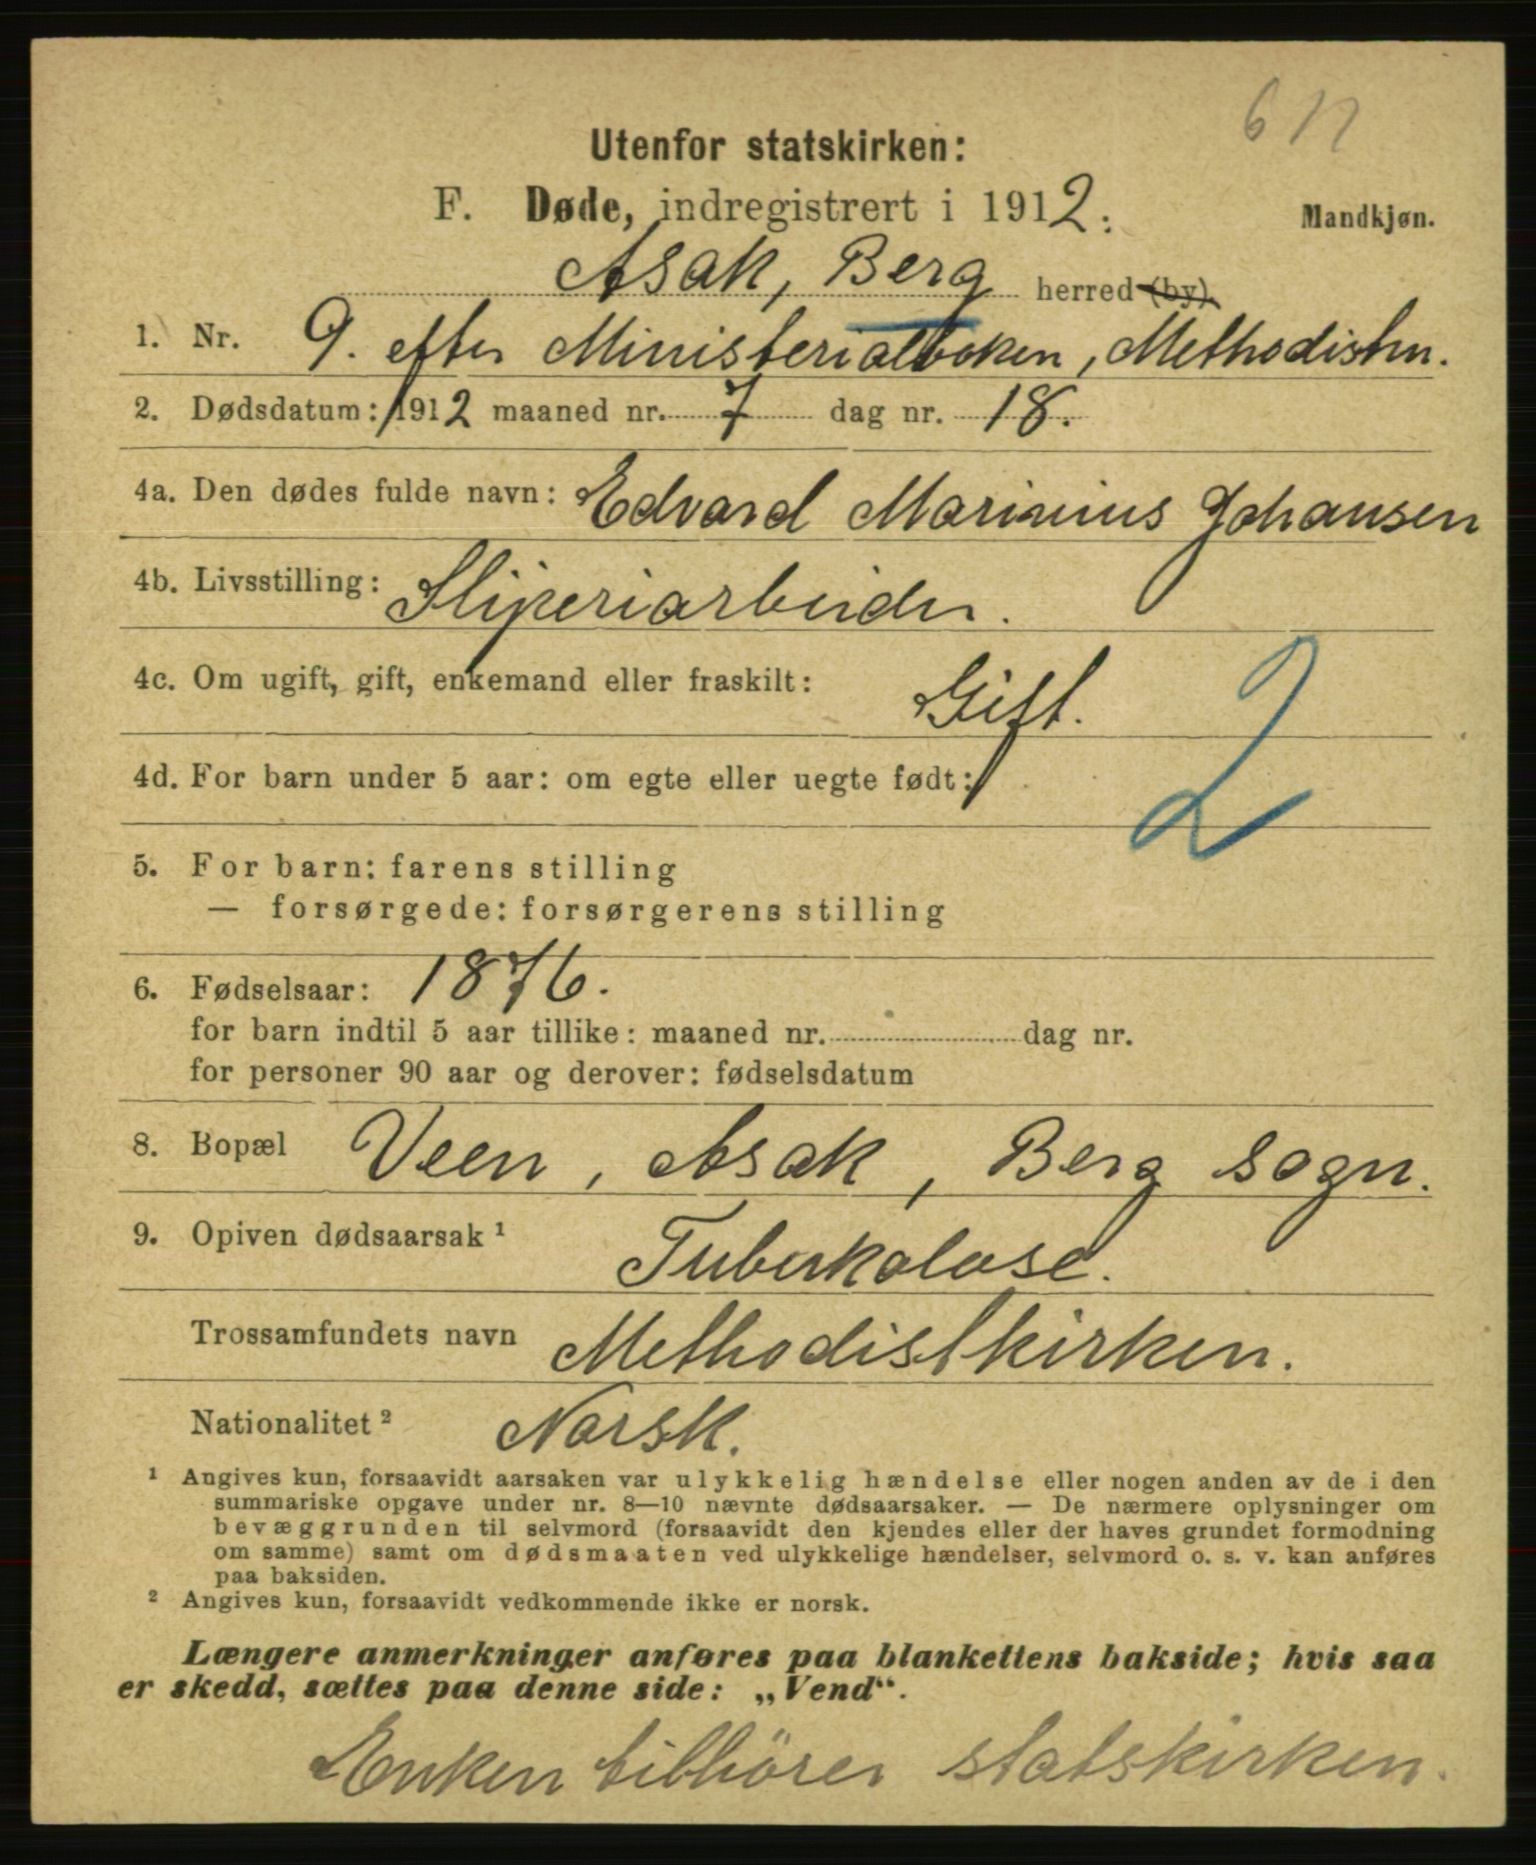 Utenfor statskirken:
F. Døde, indregistrert i 1912.
Mandkjøn.
Asak, Berg herred (by).
1. Nr. 9. efter Ministerialboken, Methodistkn.
2. Dødsdatum: 1912 maaned nr. 7 dag nr. 18.
4a. Den dødes fulde navn: Edvard Marinius Johansen
4b. Livsstilling: Sliperiarbeider.
4c. Om ugift, gift, enkemand eller fraskilt: Gift.
2
4d. For barn under 5 aar: om egte eller uegte født:
5. For barn: farens stilling
— forsørgede: forsørgerens stilling
6. Fødselsaar: 1876.
for barn indtil 5 aar tillike: maaned nr. dag nr.
for personer 90 aar og derover: fødselsdatum
8. Bopæl Veen, Asak, Berg sogn.
9. Opiven dødsaarsak ¹ Tuberkolose.
Trossamfundets navn Methodistkirken.
Nationalitet ² Norsk.
¹ Angives kun, forsaavidt aarsaken var ulykkelig hændelse eller nogen anden av de i den
summariske opgave under nr. 8—10 nævnte dødsaarsaker. — De nærmere oplysninger om
bevæggrunden til selvmord (forsaavidt den kjendes eller der haves grundet formodning
om samme) samt om dødsmaaten ved ulykkelige hændelser, selvmord o. s. v. kan anføres
paa baksiden.
² Angives kun, forsaavidt vedkommende ikke er norsk.
Længere anmerkninger anføres paa blankettens bakside; hvis saa
er skedd, sættes paa denne side: „Vend“.
Enken tilhörer statskirken.